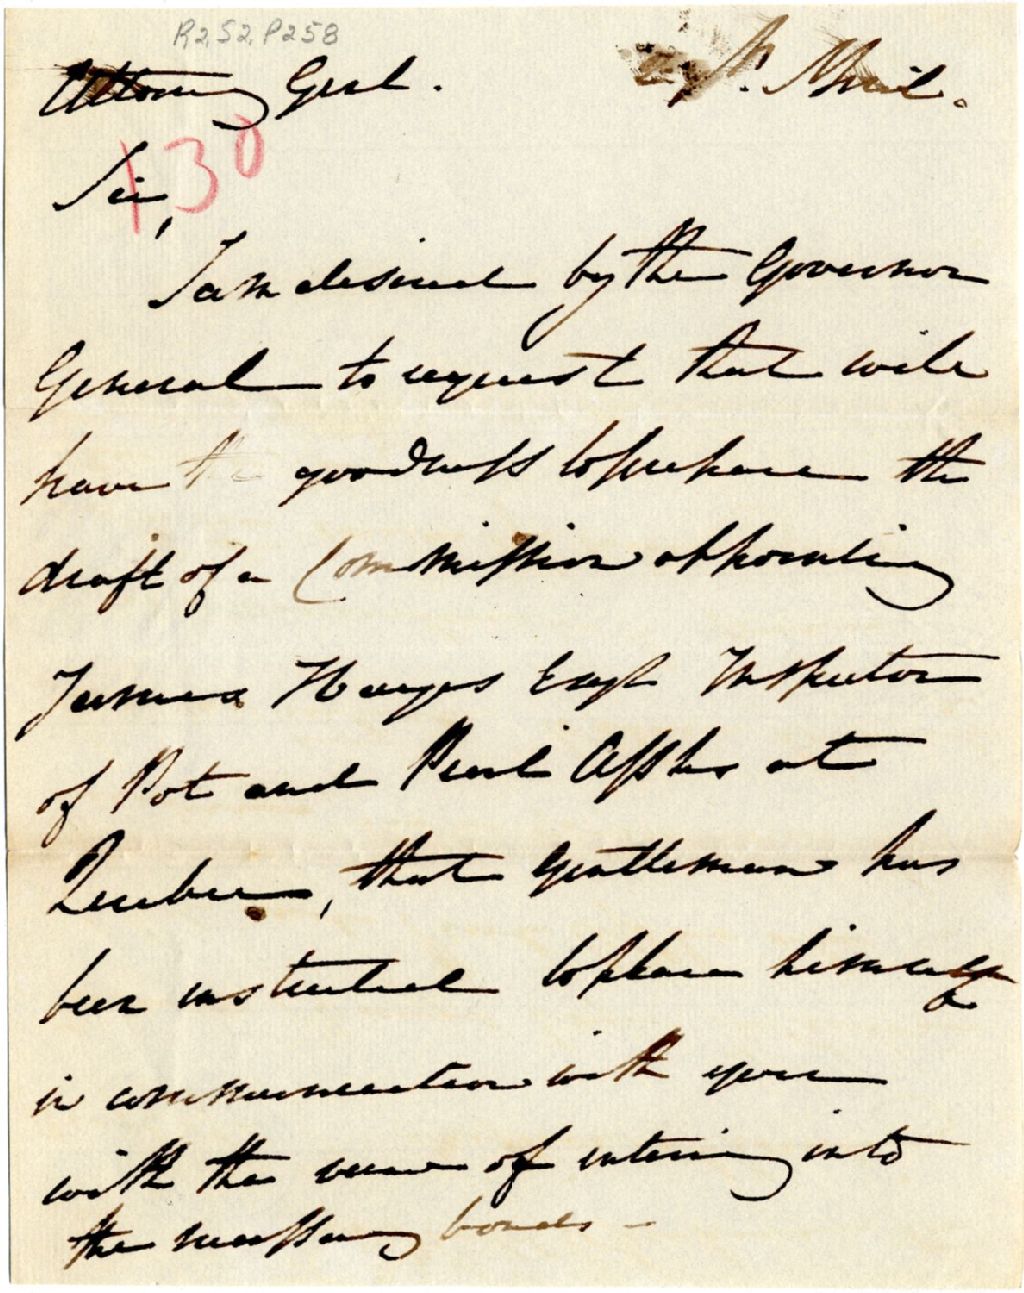 R2.S2.P258
Attorney Genl.
April.
130
Sir,
I am desired by the Governor
General to request that will
have the goodness to prepare the
draft of a Commission appointing
James Hayes Esqr Inspector
of Pot and Pearl Ashes at
Quebec, that gentleman has
been instructed to place himself
in communication with you
with the view of entering into
the necessary bonds -